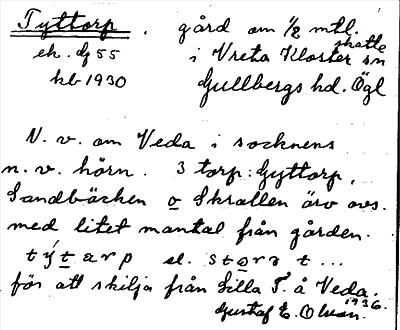 Tyttorp . gård om 1/2 mtl.
skatte
ek. dj 55 i Vreta Kloster sn
hb 1930 Gullbergs hd. Ögl
N. v. om Veda i socknens
n. v. hörn. 3 torp: Gyttorp,
Sandbäcken o Skrallen äro avs.
med litet mantal från gården.
týtarp el. stora t...
för att skilja från Lilla T. å Veda.
1936.
Gustaf E. Olson.